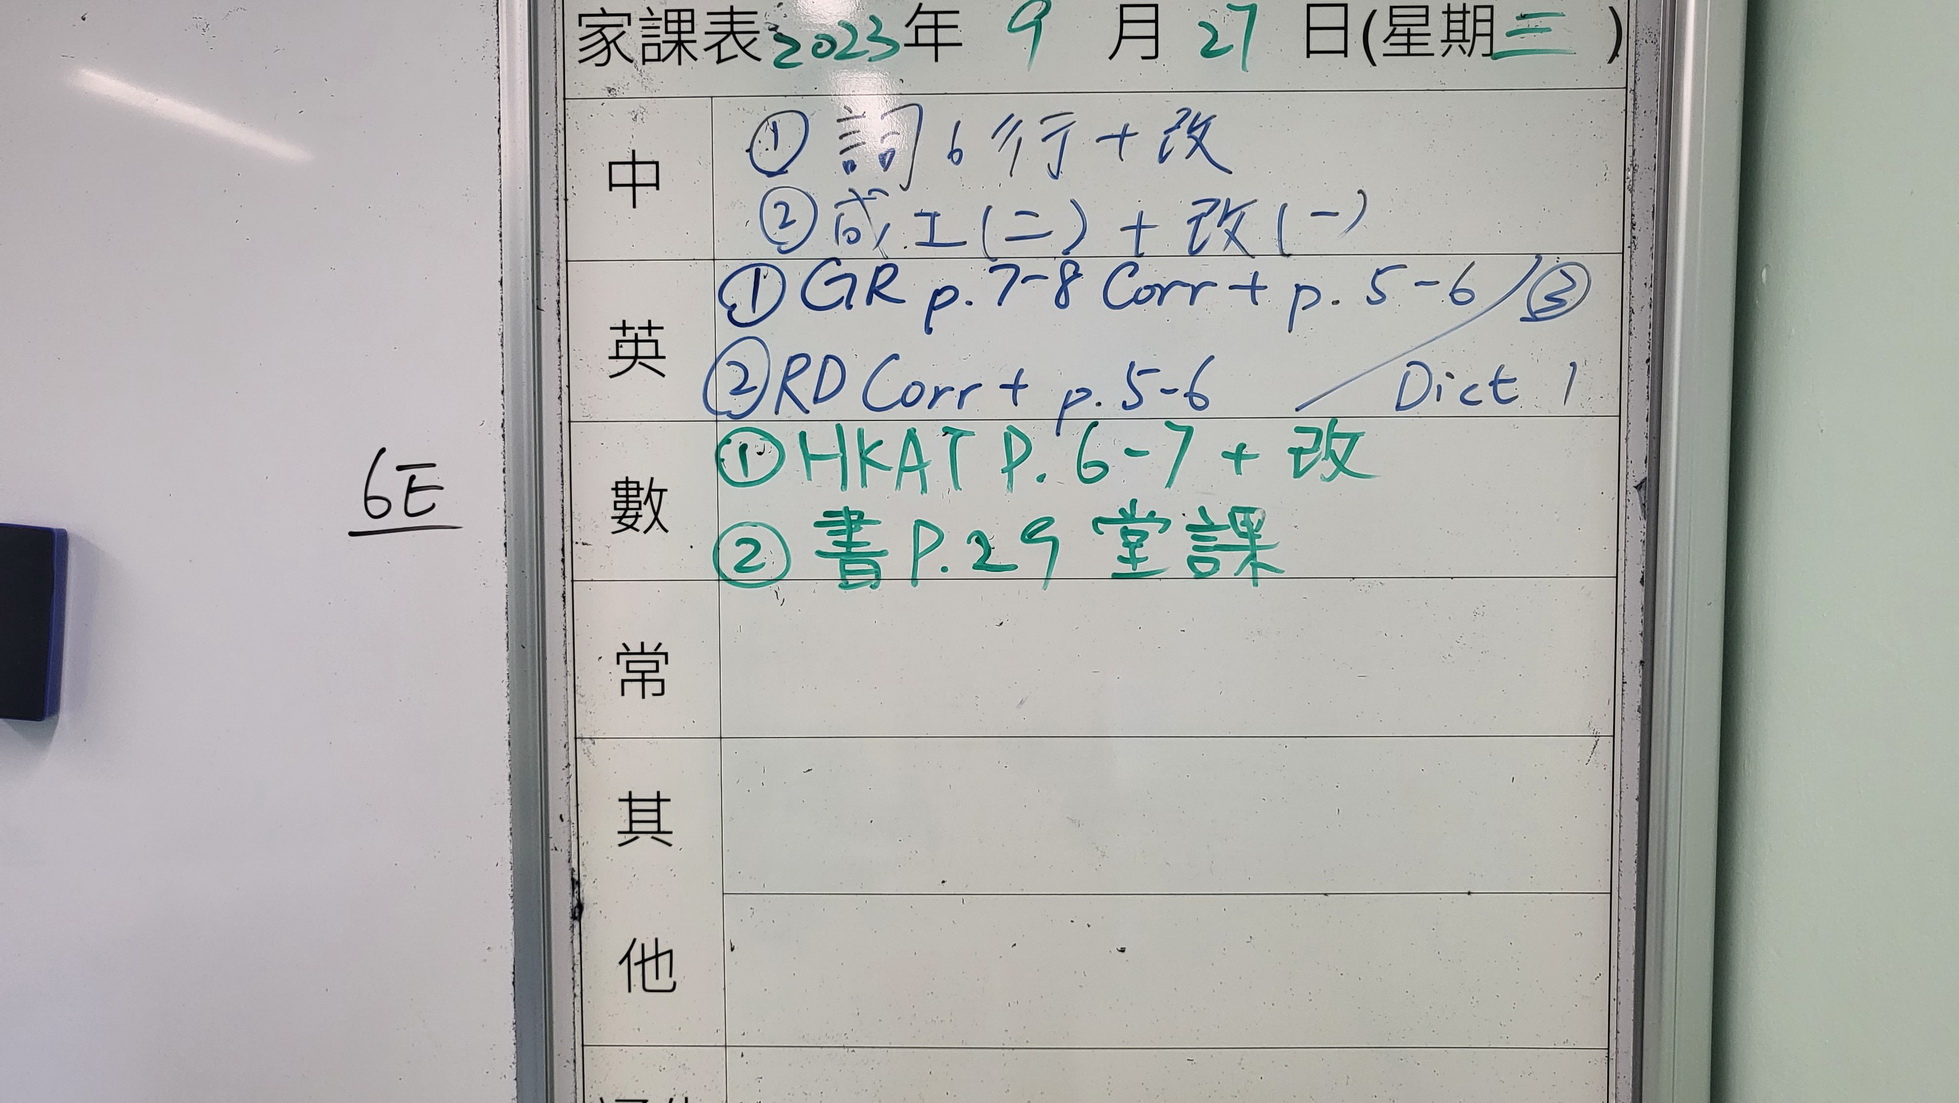 家課表2023年 9 月 27 日(星期三)
中
① 詞6行+改
② 成工(二)+改(一)
英
① GR p.7-8 Corr + p.5-6 / ③
② RD Corr + p.5-6 / Dict 1
6E
數
① HKAT P.6-7 + 改
② 書P.29堂課
常
其
他